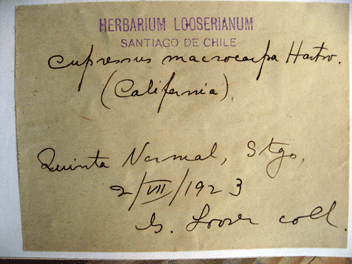 HERBARIUM LOOSERIANUM
SANTIAGO DE CHILE
Cupressus macrocarpa Hartw.
(California).
Quinta Normal, Stgo,
2/VII/1923
G. Looser coll.